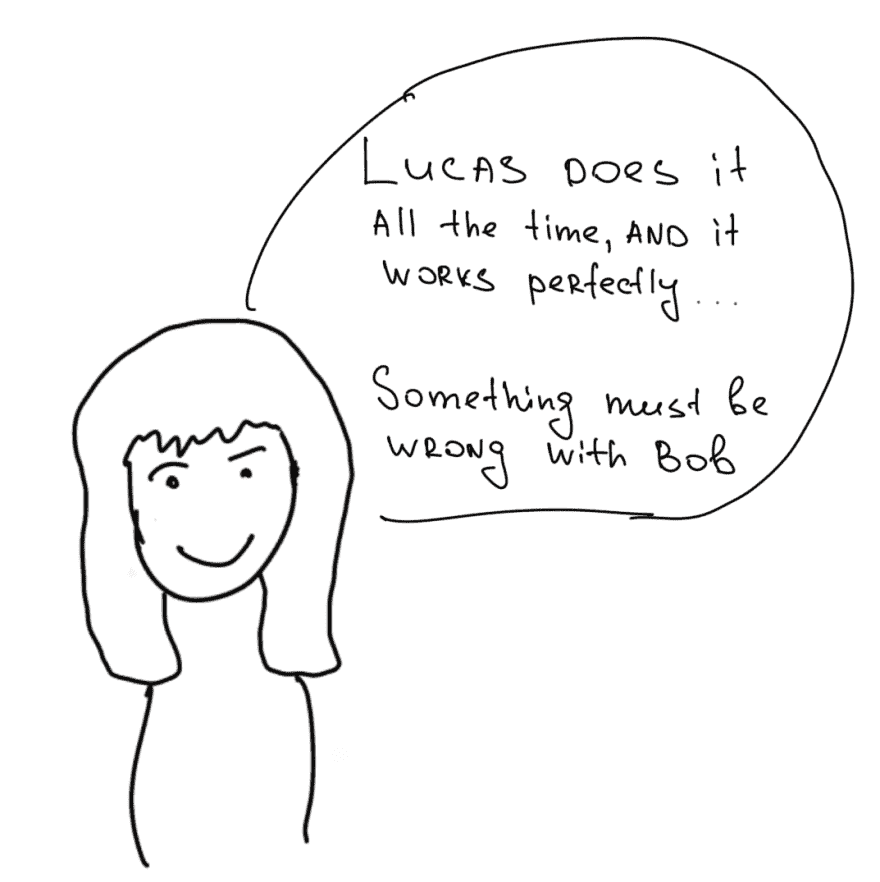 Lucas does it
all the time, and it
works perfectly ...
Something must be
wrong with Bob